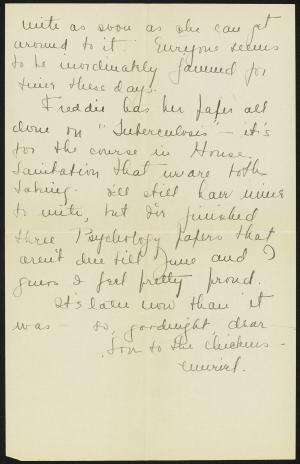 write as soon as she can get
around to it. Everyone seems
to be inordinately jammed for
time these days.
Freddie has her paper all
done on "Tuberculosis" - it's
for the course in House
Sanitation that we are both
taking. I'll still have mine
to write, but I've finished
three Psychology papers that
aren't due till June and I
guess I feel pretty proud.
It's later now than it
was - so, goodnight, dear
Love to the chickens -
Muriel.